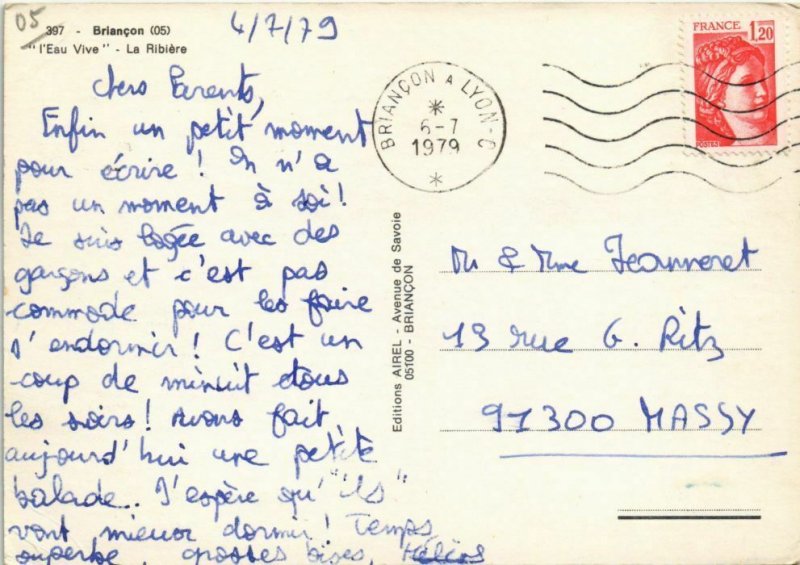 05
397 - Briançon (05)
"l'Eau Vive" - La Ribière
4/7/79
Chers Parents,
Enfin un petit moment
pour écrire ! On n'a
pas un moment à soi !
Je suis logée avec des
garçons et c'est pas
commode pour les faire
s'endormir ! C'est un
coup de minuit tous
les soirs ! Avons fait
aujourd'hui une petite
balade.. J'espère qu'"ils"
vont mieux dormir ! Temps
superbe, grosses bises,
BRIANÇON A LYON-C
6-7
1979
FRANCE 1,20
POSTES
Editions AIREL - Avenue de Savoie
05100 - BRIANÇON
M & Mme Jeanneret
13 rue G. Ritz
91300 MASSY